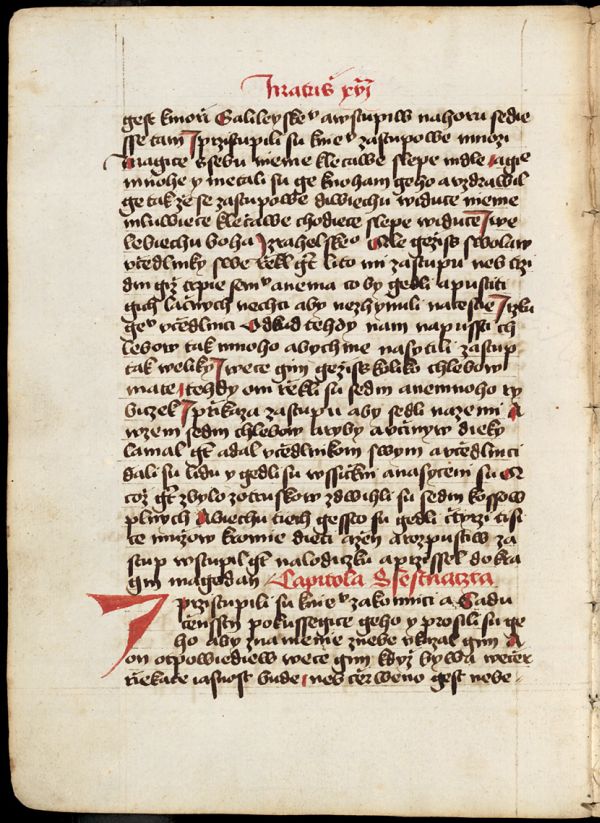 Matus xvi
gest kmorzi Galileyskeº a wstupiw nahoru sedie
sse tam I przistupili su knieº zastupowe mnozi
magice s sebu nieme klecawe slepe mdle a gie
mnohe y metali su ge knoham geho a vzdrawil
ge tak że se zastupowe diwiechu widuce nieme
mluwiece klecawe chodiece slepe widuce I we
lebiechu boha Izrahelskeº Ale geżiss swolaw
vczedlniky swe rzekl gt lito mi zastupu neb trzi
dni giż trpie semº anema co by gedli a pustiti
gich lacznych nechci aby nezhynuli nacestie I rzku
geº vczedlnici Odkud tehdy nam napussti ch
lebow tak mnoho abychme nasytili zastup
tak weliky I wece gim geżiss koliko chlebow
mate tehdy oni rzekli su sedm anemnoho ry
biczek I przikaza zastupu aby sedli nazemi A
wzem sedm chlebow aryby a vcziniw dieky
lamal gt adal vczedlnikom swym a vczedlnici
dali su lidu y gedli su wssickni anasyceni su A
coż gt zbylo zotruskow zdwihli su sedm kossow
plnych A biechu tiech gessto su gedli cztyrzi tisi
ce mużow kromie dieti ażen arozpustiw za
stup wstupil gt nalodiczku aprzissel dokra
gin magedan Capitola Ssestnatzta
I przistupili su knieº zakonnici a Sadu
censsti pokussegice geho y prosili su ge
ho aby znamenie znebe vkazal gim A
on otpowiediew wece gim kdyż bywa weczer
rziekate iasnost bude neb czerweno gest nebe